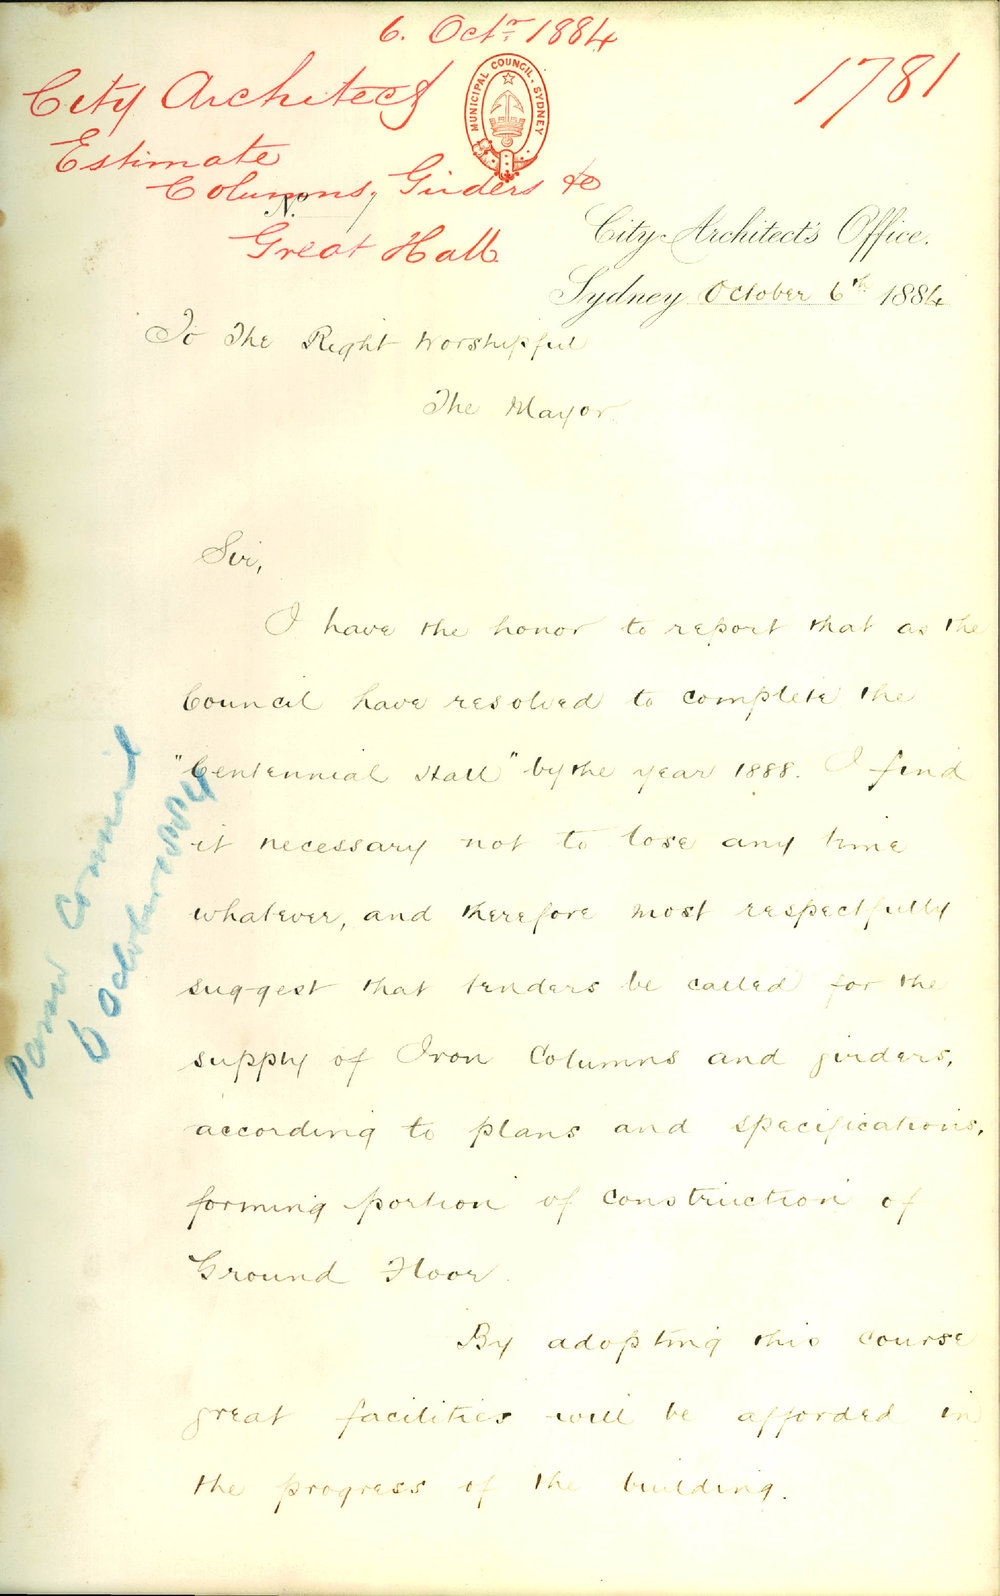 6. Octr. 1884
1781
City Architect
Estimate
Columns, Girders &c
Great Hall
MUNICIPAL COUNCIL. SYDNEY
No.
City Architect's Office.
Sydney October 6th 1884
To The Right Worshipful
The Mayor.
Sir,
I have the honor to report that as the
Council have resolved to complete the
"Centennial Hall" by the year 1888. I find
it necessary not to lose any time
whatever, and therefore most respectfully
suggest that tenders be called for the
supply of Iron Columns and girders,
according to plans and specifications,
forming portion of construction of
Ground Floor.
By adopting this course
great facilities will be afforded in
the progress of the building.
October 1884